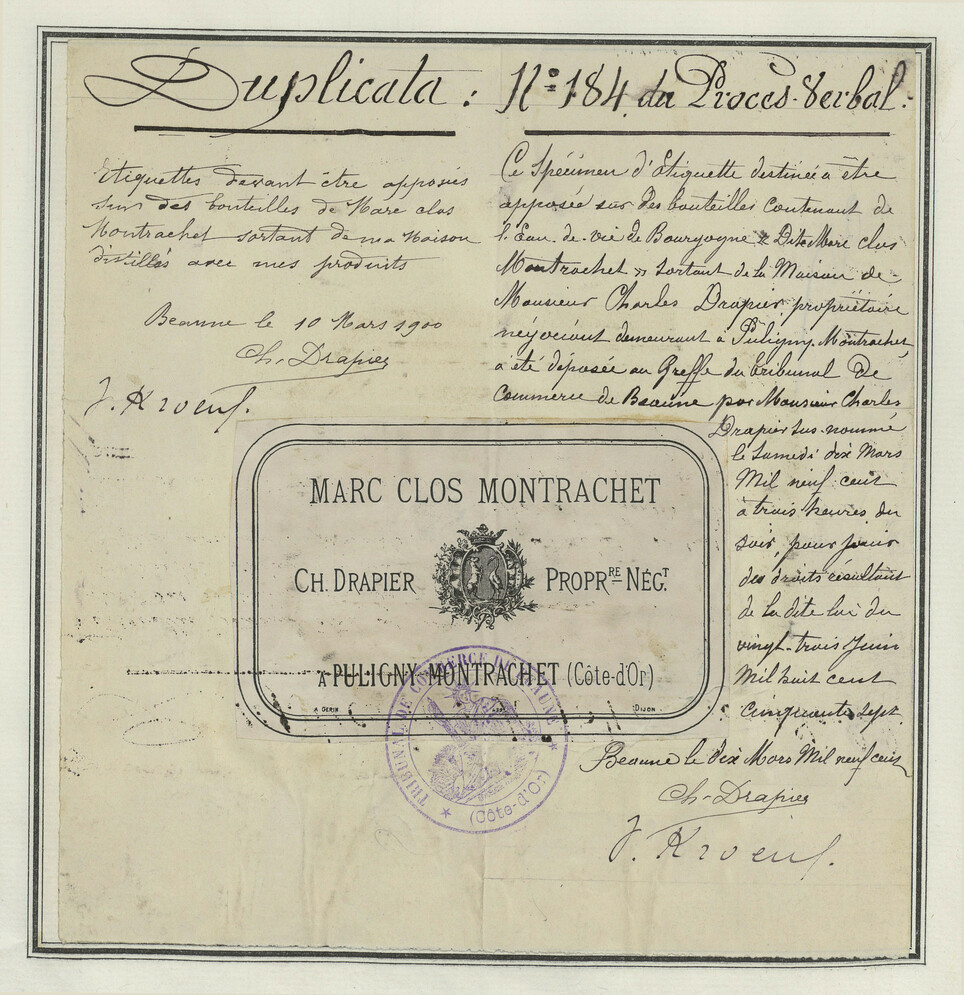 Duplicata : Nº 184 du Procès-Verbal.
Etiquettes devant être apposées
sur des bouteilles de Marc clos
Montrachet sortant de ma Maison
distillés avec mes produits
Beaune le 10 Mars 1900
Ch. Drapier
Ce Spécimen d'Etiquette destinée à être
apposée sur des bouteilles contenant de
l'Eau-de-vie de Bourgogne « Dite Marc clos
Montrachet » sortant de la Maison de
Monsieur Charles Drapier, propriétaire
négociant demeurant à Puligny-Montrachet,
a été déposée au Greffe du tribunal de
Commerce de Beaune par Monsieur Charles
Drapier sus-nommé
le Samedi dix Mars
Mil neuf cent
à trois heures du
soir, pour jouir
des droits résultant
de la dite loi du
vingt-trois Juin
Mil huit cent
cinquante sept.
Beaune le dix Mars Mil neuf cent
Ch. Drapier
MARC CLOS MONTRACHET
CH. DRAPIER PROPRRE NÉGT.
A PULIGNY-MONTRACHET (Côte-d'Or)
A GERIN DIJON
TRIBUNAL DE COMMERCE DE BEAUNE
(Côte-d'Or)